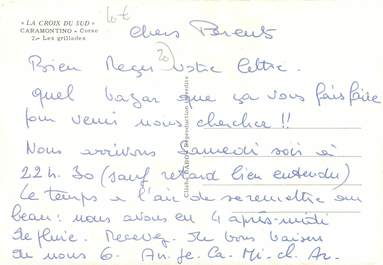 « LA CROIX DU SUD »
CARAMONTINO - Corse
2 - Les grillades
10€
20
Chers Parents
Bien Reçu votre lettre.
quel bazar que ça vous fais faire
pour venir nous chercher !!
Nous arrivons Samedi soir à
22h.30 (sauf retard bien entendu)
Le temps a l'air de se remettre au
beau : nous avons eu 4 après-midi
de pluie. Recevez de bons baisers
de nous 6. An. Je. Ca. Mi. ch. Ar.
Reproduction interdite